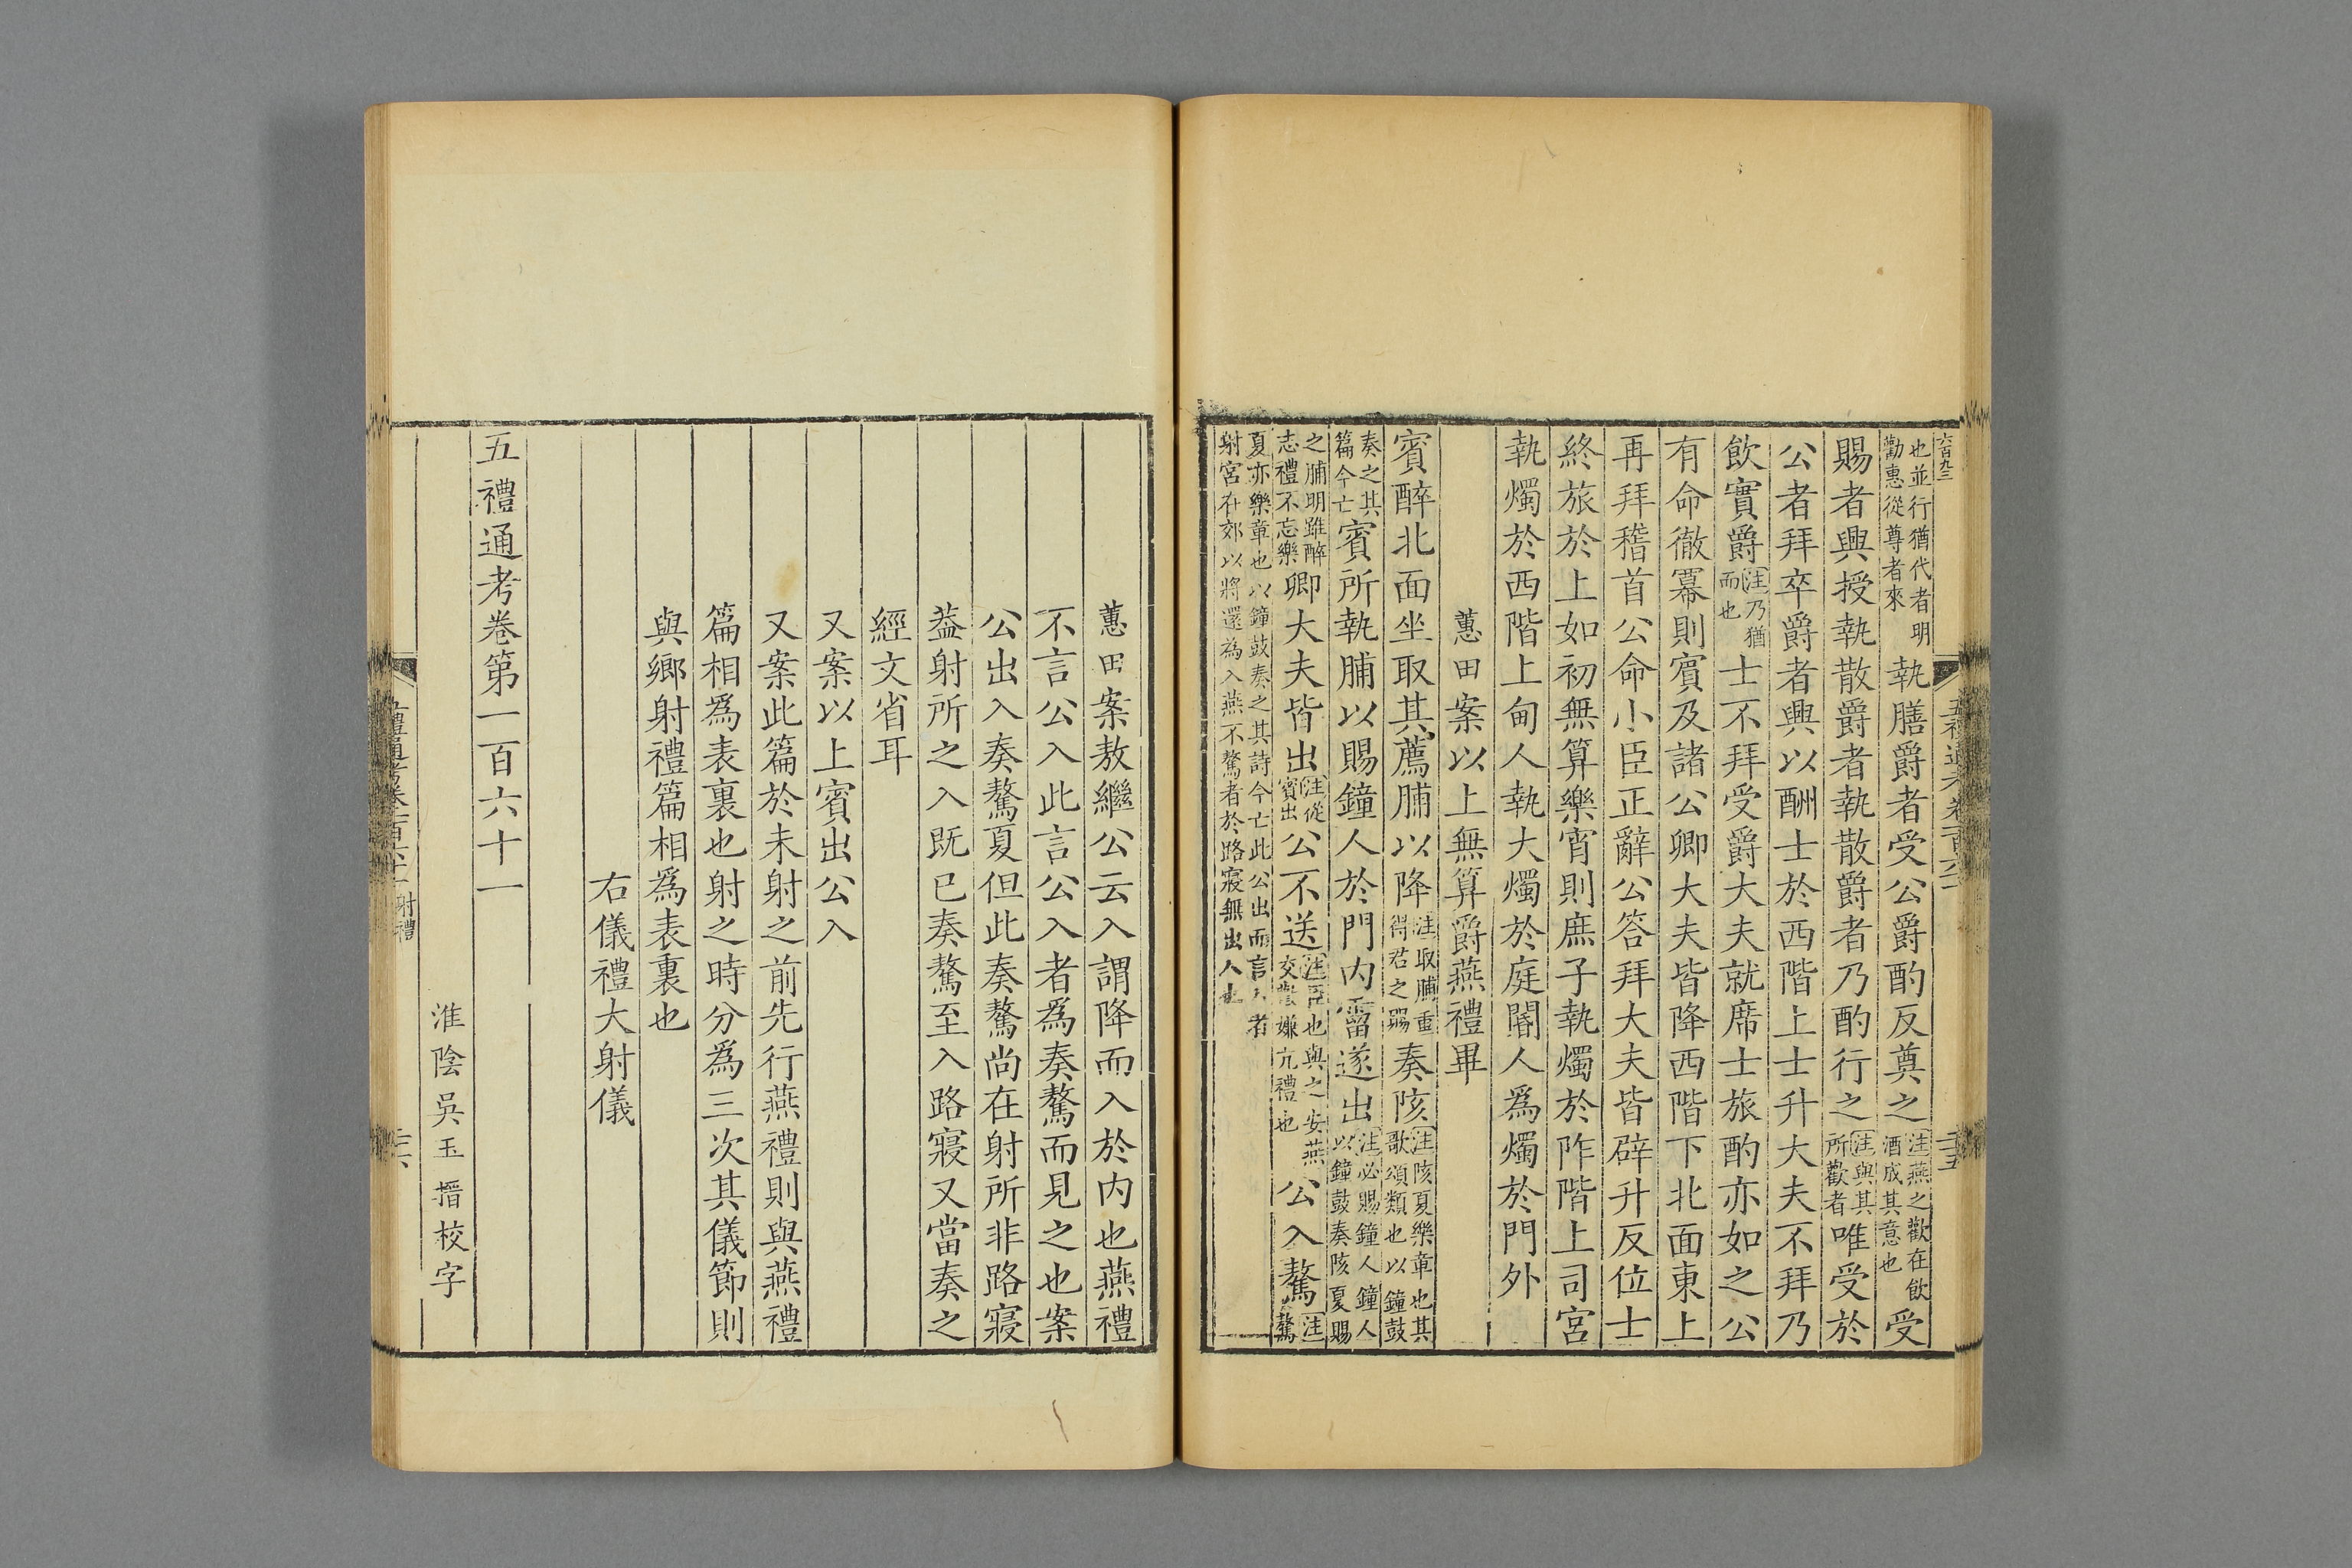 六百九三
也並行猶代者明
勸惠從尊者來
執膳爵者受公爵酌反奠之
注燕之歡在飲
酒成其意也
受
賜者興授執散爵者執散爵者乃酌行之
注與其
所歡者
唯受於
公者拜卒爵者興以酬士於西階上士升大夫不拜乃
飲實爵
注乃猶
而也
士不拜受爵大夫就席士旅酌亦如之公
有命徹冪則賓及諸公卿大夫皆降西階下北面東上
再拜稽首公命小臣正辭公答拜大夫皆辟升反位士
終旅於上如初無算樂宵則庶子執燭於阼階上司宮
執燭於西階上甸人執大燭於庭閽人爲燭於門外
蕙田案以上無算爵燕禮畢
賓醉北面坐取其薦脯以降
注取脯重
得君之賜
奏陔
注陔夏樂章也其
歌頌類也以鐘鼓
奏之其
篇今亡
賓所執脯以賜鐘人於門内霤遂出
注必賜鐘人鐘人
以鐘鼓奏陔夏賜
之脯明雖醉
志禮不忘樂
卿大夫皆出
注從
賓出
公不送
注臣也與之安燕
交歡嫌亢禮也
公入驁
注
驁
夏亦樂章也以鐘鼓奏之其詩今亡此公出而言入者
射宮在郊以將還為入燕不驁者於路寢無出入也
五禮通考卷一百六十一
三五
蕙田案敖繼公云入謂降而入於内也燕禮
不言公入此言公入者爲奏驁而見之也案
公出入奏驁夏但此奏驁尚在射所非路寢
葢射所之入旣已奏驁至入路寢又當奏之
經文省耳
又案以上賓出公入
又案此篇於未射之前先行燕禮則與燕禮
篇相爲表裏也射之時分爲三次其儀節則
與鄉射禮篇相爲表裏也
右儀禮大射儀
五禮通考卷第一百六十一
淮陰吳玉搢校字
五禮通考卷一百六十一 射禮
三六